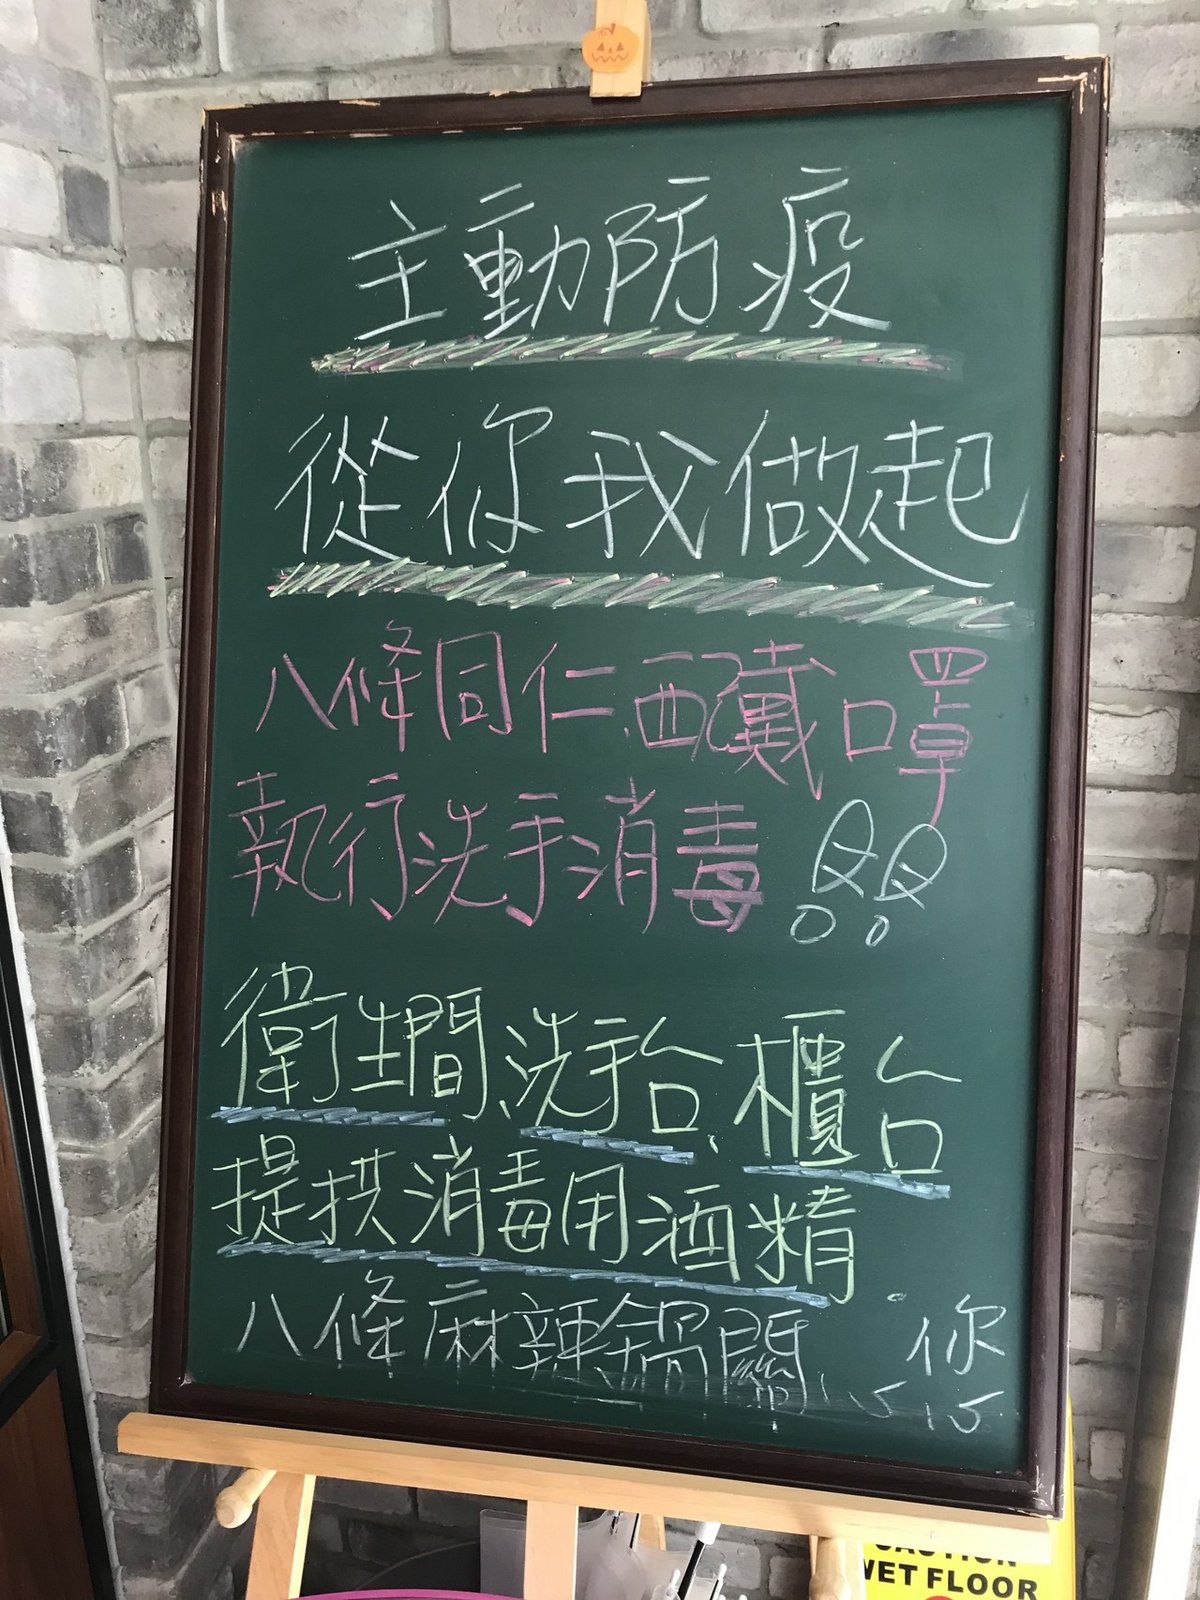 主動防疫
從你我做起
八條同仁配戴口罩
執行洗手消毒!!
衛生間、洗手台、櫃台
提拱消毒用酒精.
八條麻辣鍋關 你
CAUTION
WET FLOOR